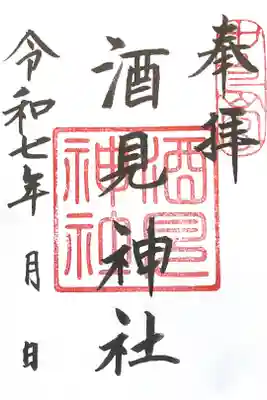 奉拝
酒見神社
酒見神社
令和七年 月 日